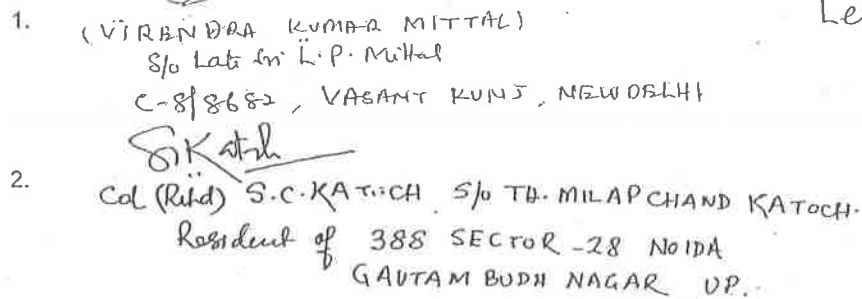 Le
1. (VIRENDRA KUMAR MITTAL)
S/o Late Sri L.P. Mittal
C-8/8682, VASANT KUNJ, NEW DELHI
SKatoch
2. Col (Retd) S.C. KATOCH S/o TH. MILAP CHAND KATOCH.
Resident of 388 SECTOR-28 NOIDA
GAUTAM BUDH NAGAR UP.